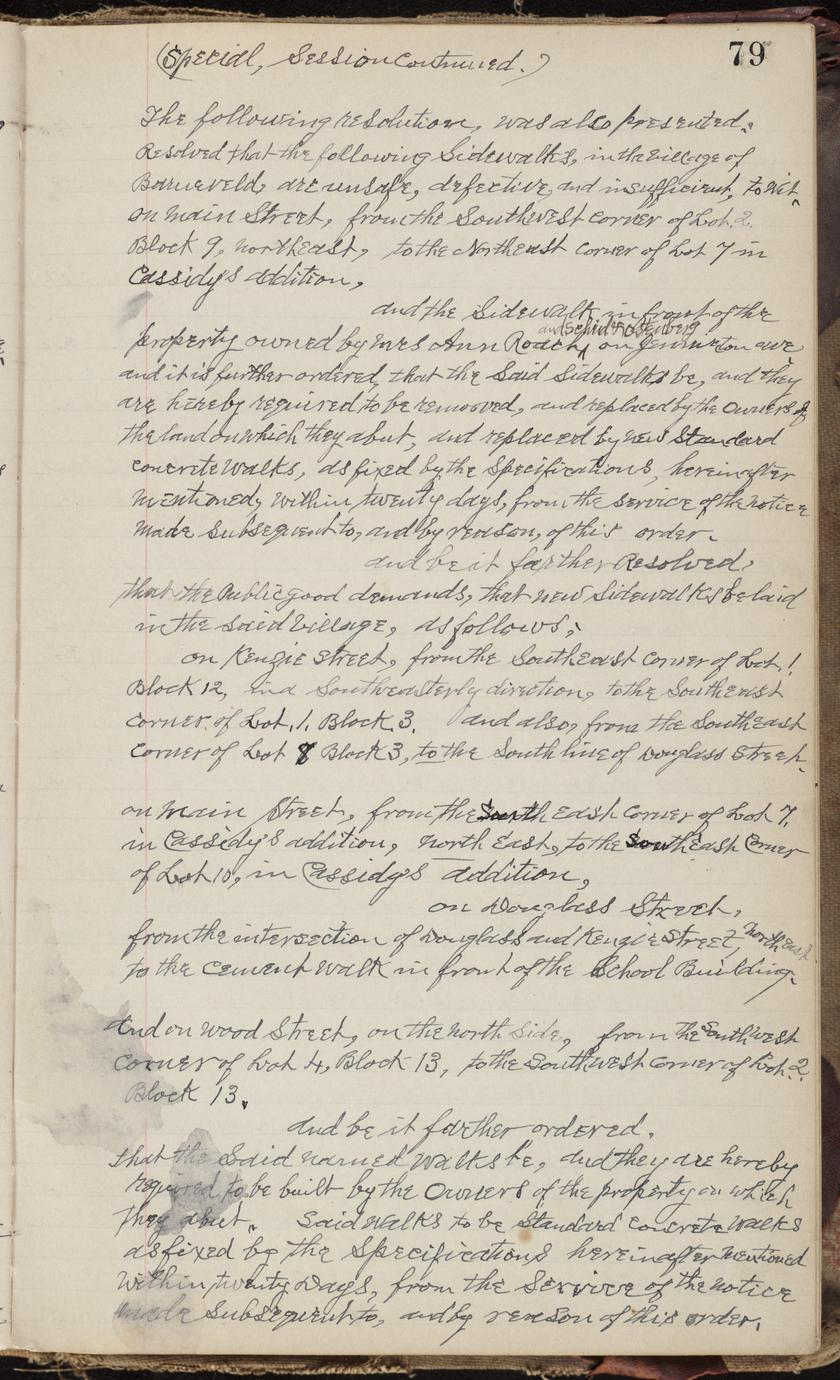 79
(Special, Session continued.)
The following resolution, was also presented.
Resolved that the following Sidewalks, in the village of
Barneveld, are unsafe, defective, and insufficient, to wit,
on Main Street, from the Southwest corner of Lot. 2.
Block 9, northeast, to the Northeast corner of Lot 7 in
Cassidy's addition,
and the Sidewalk in front of the
and Schid Rosenberg
property owned by Mrs Ann Roach, on Jenniton ave
and it is further ordered, that the Said Sidewalks be, and they
are hereby required to be removed, and replaced by the Owners of
the land on which they abut, and replaced by new Standard
concrete walks, as fixed by the Specifications, hereinafter
mentioned, within twenty days, from the service of the notice
made Subsequent to, and by reason, of this order.
and be it farther Resolved,
that the Public good demands, that new Sidewalks be laid
in the said Village, as follows,
on Kenzie Street, from the Southeast corner of Lot. 1
Block 12, in a Southeasterly direction, to the Southeast
corner of Lot. 1. Block. 3. and also, from the Southeast
Corner of Lot 8 Block 3, to the South line of Douglass Street.
on Main Street, from the South East Corner of Lot 7,
in Cassidy's addition, North East, to the South East Corner
of Lot 10, in Cassidy's addition,
on Douglass Street,
from the intersection of Douglass and Kenzie Street, North East
to the Cement Walk in front of the School Building.
And on Wood Street, on the North Side, from the Southwest
corner of Lot 4, Block 13, to the Southwest Corner of Lot. 2.
Block 13.
and be it farther ordered.
that the Said named Walks be, and they are hereby
required to be built by the Owners of the property on which
they abut. Said Walks to be Standard Concrete Walks
as fixed by the Specifications hereinafter mentioned
Within twenty Days, from the Service of the notice
made Subsequent to, and by reason of this order.